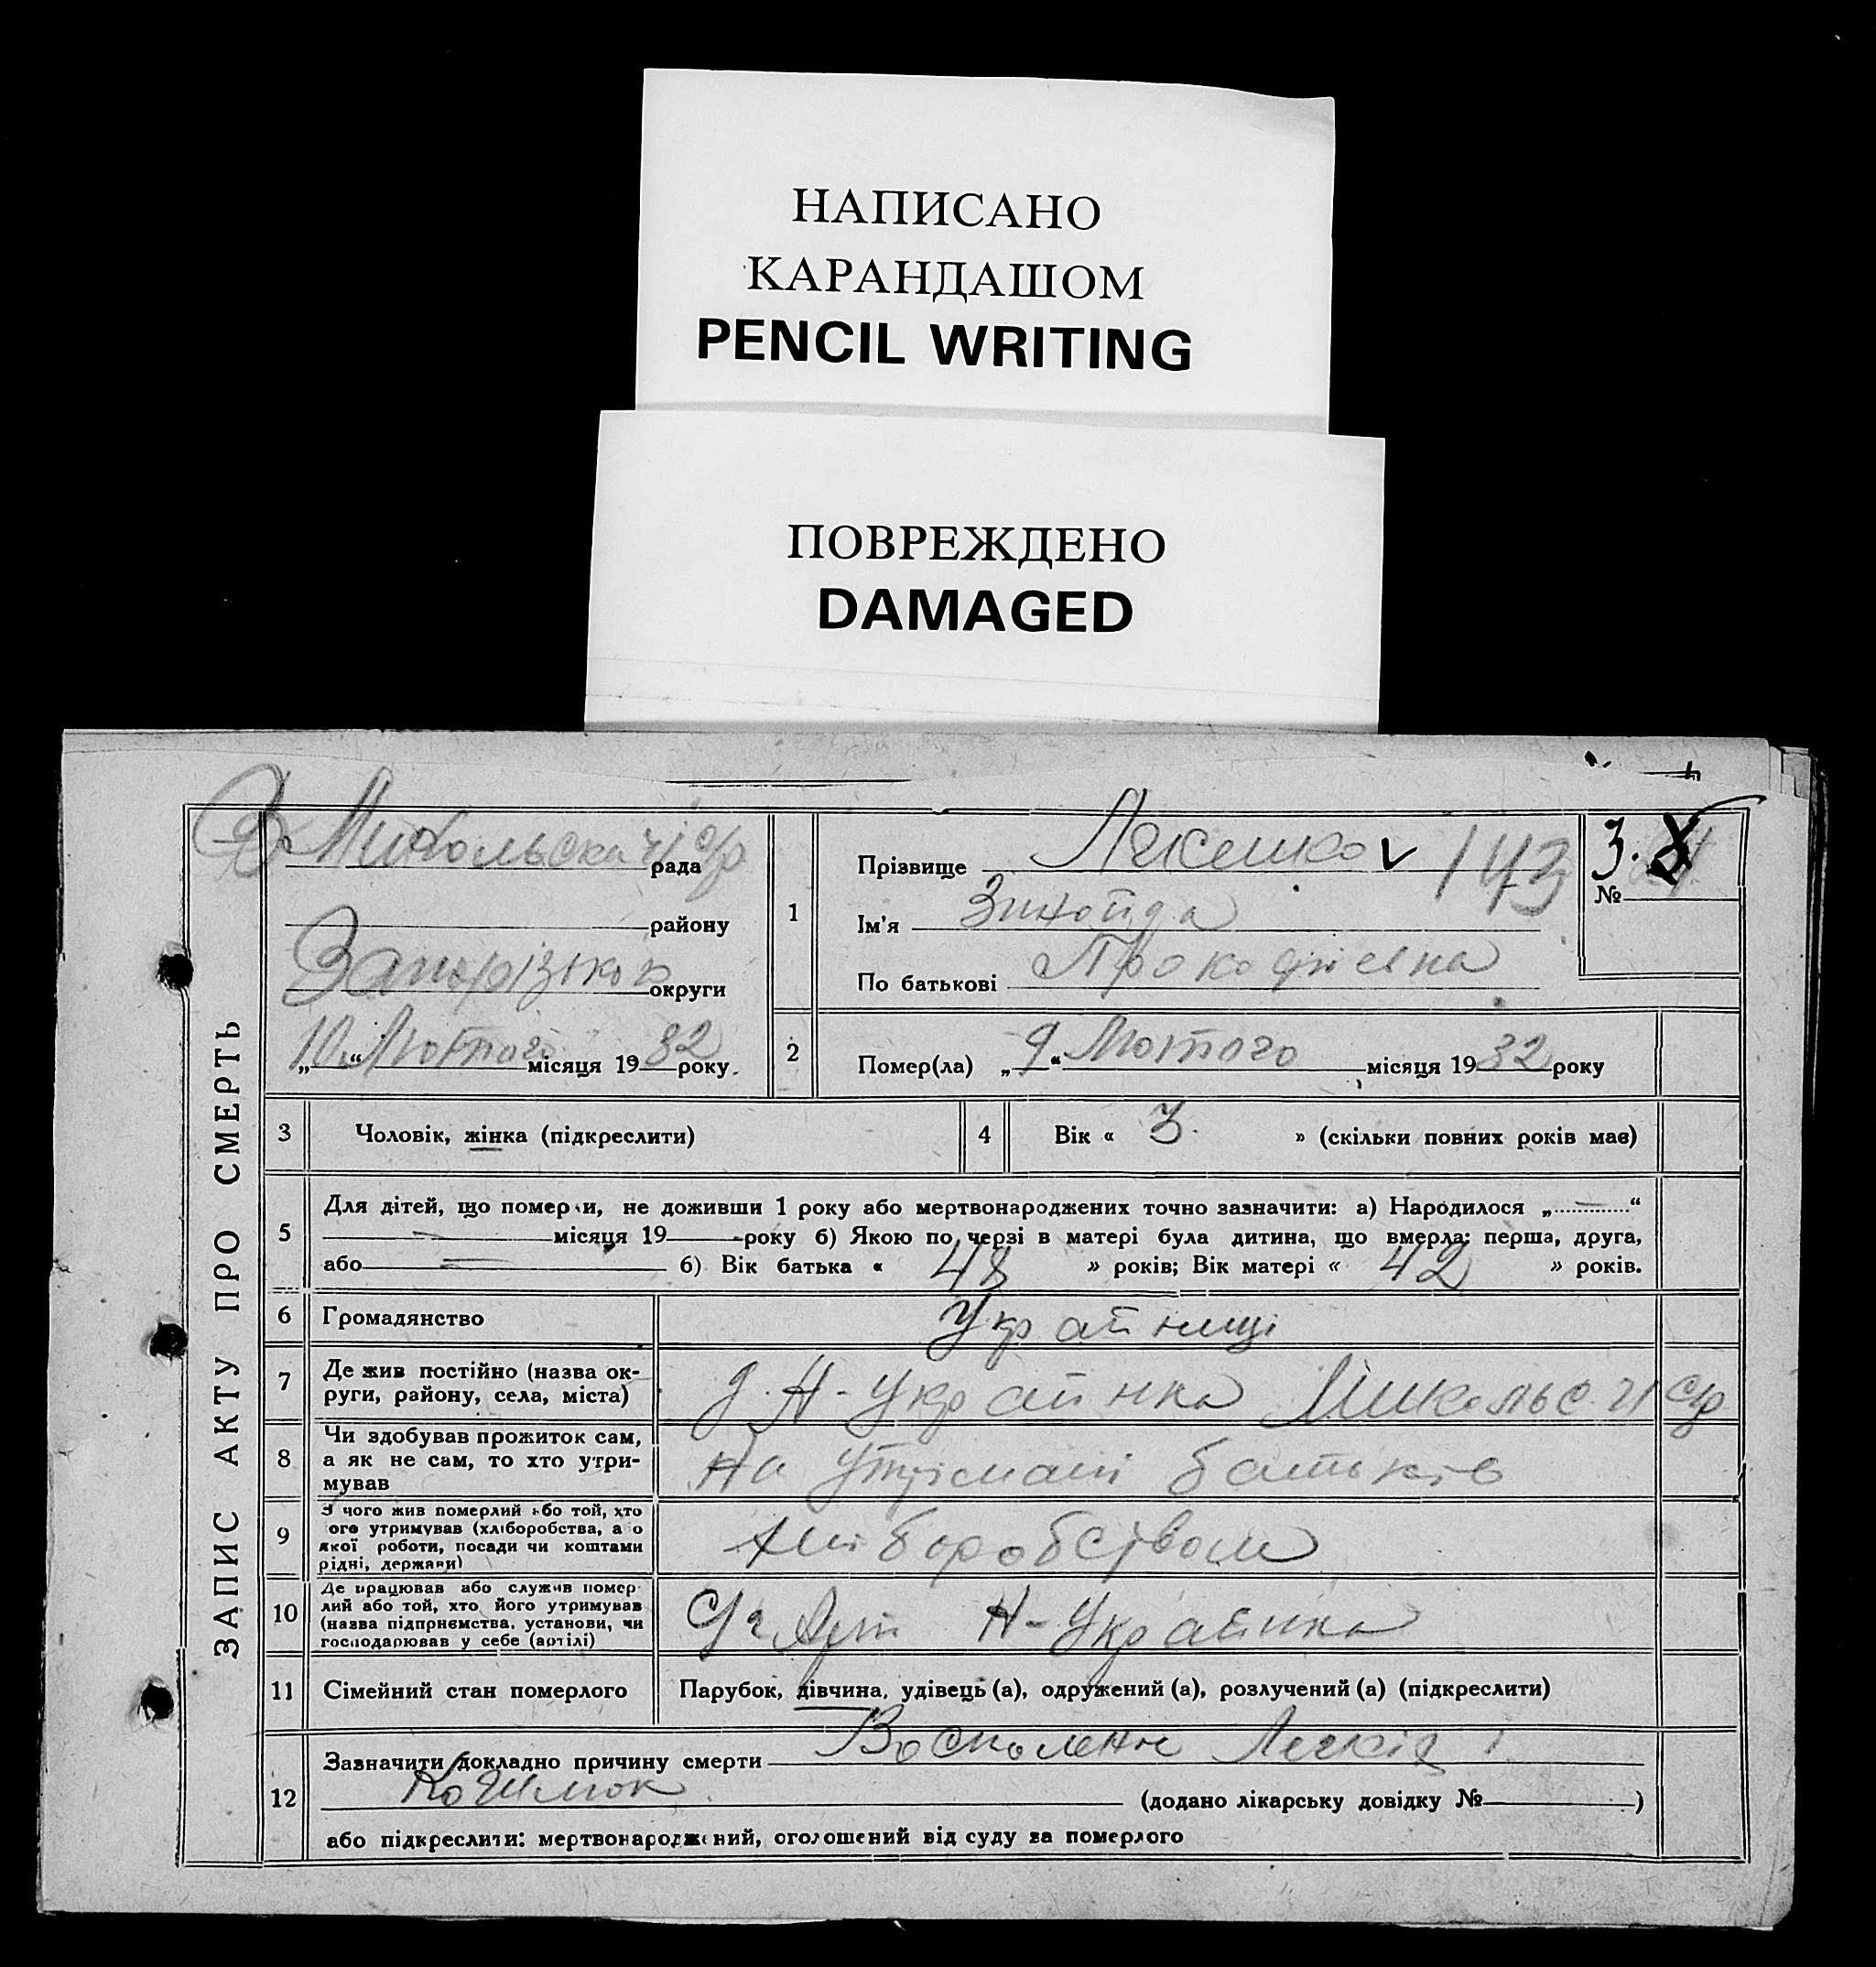 НАПИСАНО
КАРАНДАШОМ
PENCIL WRITING
ПОВРЕЖДЕНО
DAMAGED
ЗАПИС АКТУ ПРО СМЕРТЬ
рада
району
Запорізької округи
„10“ Лютого місяця 1932 року.
1
Прізвище 143
Ім'я Зинаїда
По батькові Прокофіевна
3.
№
2
Помер(ла) „9“ Лютого місяця 1932 року
3
Чоловік, жінка (підкреслити)
4
Вік « 3 » (скільки повних років мав)
5
Для дітей, що померли, не доживши 1 року або мертвонароджених точно зазначити: а) Народилося „—“
— місяця 19 — року б) Якою по черзі в матері була дитина, що вмерла: перша, друга,
або — б) Вік батька « 48 » років; Вік матері « 42 » років.
6
Громадянство
Українці
7
Де жив постійно (назва ок-
руги, району, села, міста)
Н-Українка Микольс с/р
8
Чи здобував прожиток сам,
а як не сам, то хто утри-
мував
на утримані батьків
9
З чого жив померлий або той, хто
його утримував (хліборобства, або
якої роботи, посади чи коштами
рідні, держави)
хліборобством
10
Де працював або служив помер-
лий або той, хто його утримував
(назва підприємства, установи, чи
господарював у себе (артілі)
Арт Н-Українка
11
Сімейний стан померлого
Парубок, дівчина, удівець (а), одружений (а), розлучений (а) (підкреслити)
12
Зазначити докладно причину смерти
(додано лікарську довідку № )
або підкреслити: мертвонароджений, оголошений від суду за померлого